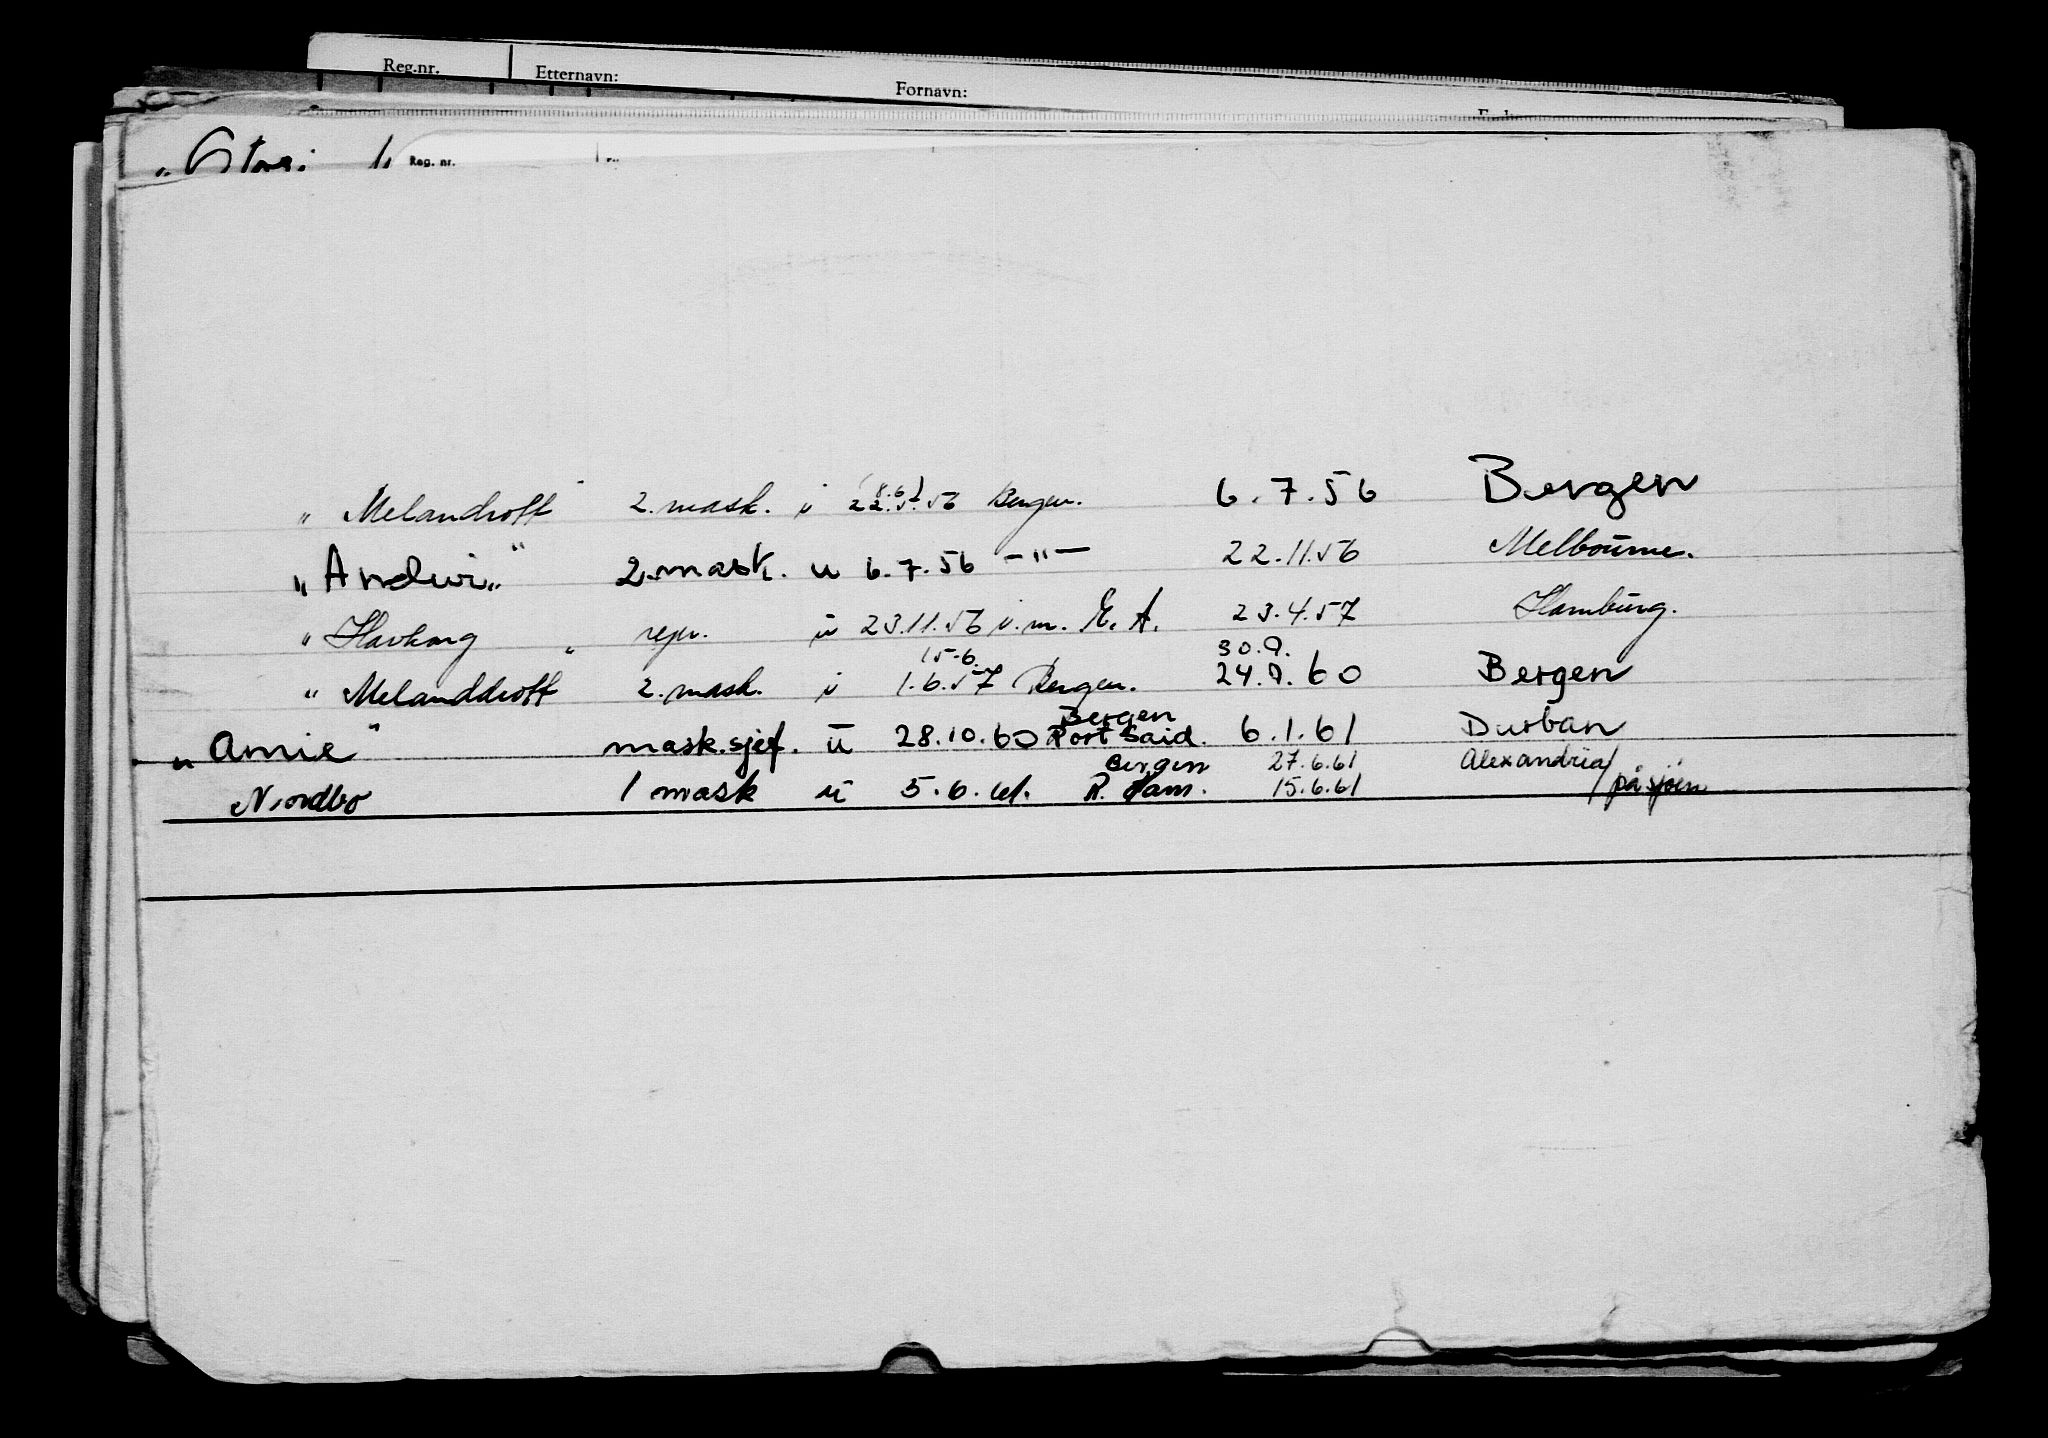 Reg.nr. Etternavn: Fornavn:
Reg. nr.
(8.6)
" Melandroft " 2. mask. i 22.5.56 Bergen. 6.7.56 Bergen
" Andwi " 2. mask. u 6.7.56 — " — 22.11.56 Melbourne.
" Havkong " repr. u 23.11.56 i.m. E. A. 23.4.57 Hamburg.
15.6. 30.9.
" Melanddroft 2. mask. i 1.6.57 Bergen. 24.9.60 Bergen
Bergen
" Amie " mask.sjef. u 28.10.60 Port Said. 6.1.61 Durban
Bergen 27.6.61 Alexandria/
Nordbo 1 mask u 5.6.61. 15.6.61 /på sjøen